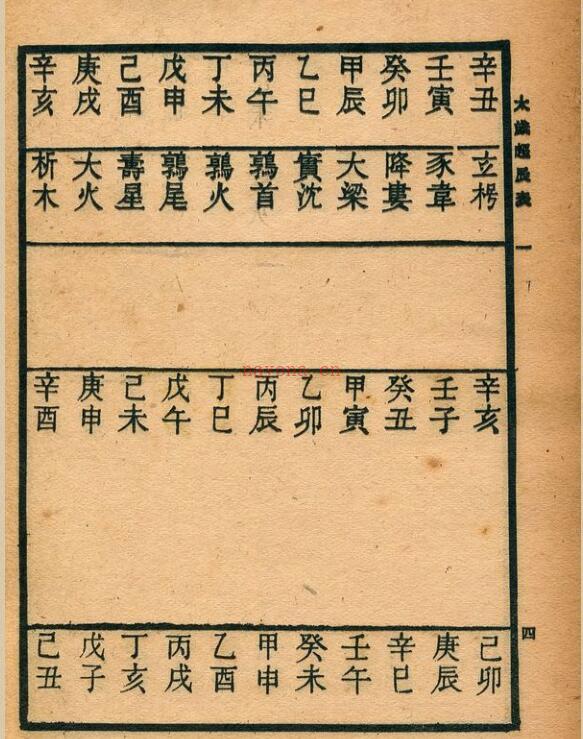 太歲超辰表 一 四
辛丑 玄枵 辛亥 己卯
壬寅 豕韋 壬子 庚辰
癸卯 降婁 癸丑 辛巳
甲辰 大梁 甲寅 壬午
乙巳 實沈 乙卯 癸未
丙午 鶉首 丙辰 甲申
丁未 鶉火 丁巳 乙酉
戊申 鶉尾 戊午 丙戌
己酉 壽星 己未 丁亥
庚戌 大火 庚申 戊子
辛亥 析木 辛酉 己丑